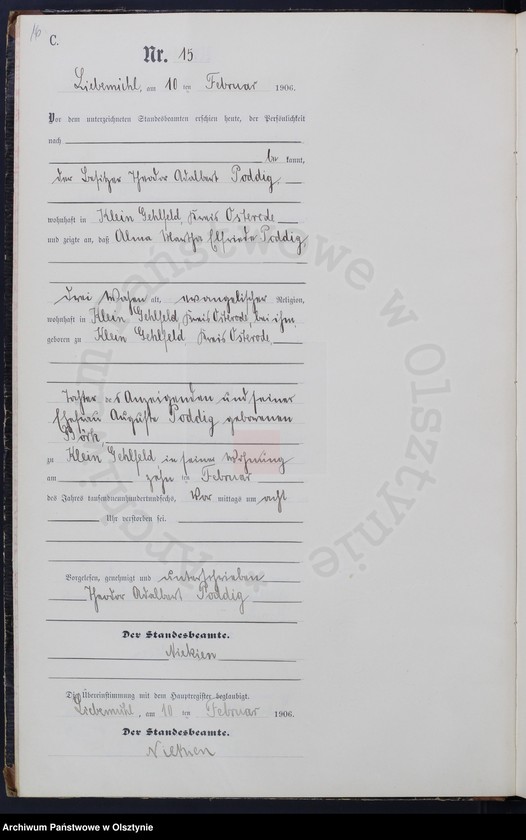 16
C.
Nr. 15
Liebemühl, am 10 ten Februar 1906.
Vor dem unterzeichneten Standesbeamten erschien heute, der Persönlichkeit
nach
be kannt,
der Besitzer Theodor Adalbert Poddig,
wohnhaft in Klein Gehlfeld, Kreis Osterode
und zeigte an, daß Alma Martha Elfriede Poddig
drei Wochen alt, evangelischer Religion,
wohnhaft in Klein Gehlfeld Kreis Osterode, bei ihm,
geboren zu Klein Gehlfeld Kreis Osterode,
Tochter des Anzeigenden und seiner
Ehefrau Auguste Poddig geborenen
zu Klein Gehlfeld in seiner Wohnung
am zehn ten Februar
des Jahres tausendneunhundertundsechs, Vor mittags um acht
Uhr verstorben sei.
Vorgelesen, genehmigt und unterschrieben
Theodor Adalbert Poddig
Der Standesbeamte.
Die Übereinstimmung mit dem Hauptregister beglaubigt.
Liebemühl, am 10 ten Februar 1906.
Der Standesbeamte.
Archiwum Państwowe w Olsztynie
Archiwum Państwowe w Olsztynie